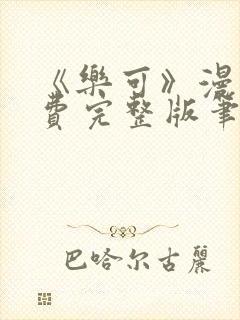 《樂可》漫
費完整版筆
巴哈尔古麗